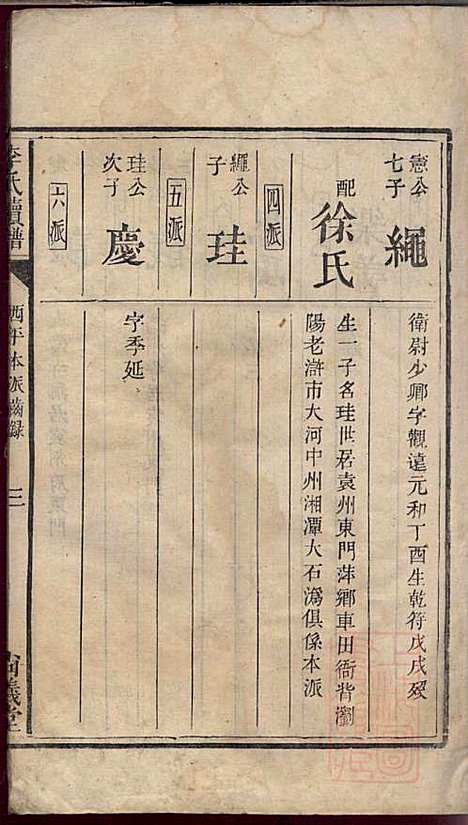 憲公七子 繩
衛尉少卿字觀遠元和丁酉生乾符戊戌歿
配 徐氏
生一子名珪世居袁州東門萍鄉車田衙背瀏
陽老滸市大河中州湘潭大石潙俱係本派
四派
繩公子 珪
五派
珪公次子 慶
字季延
六派
李氏續譜
酉平本派齒錄
三
尚義堂